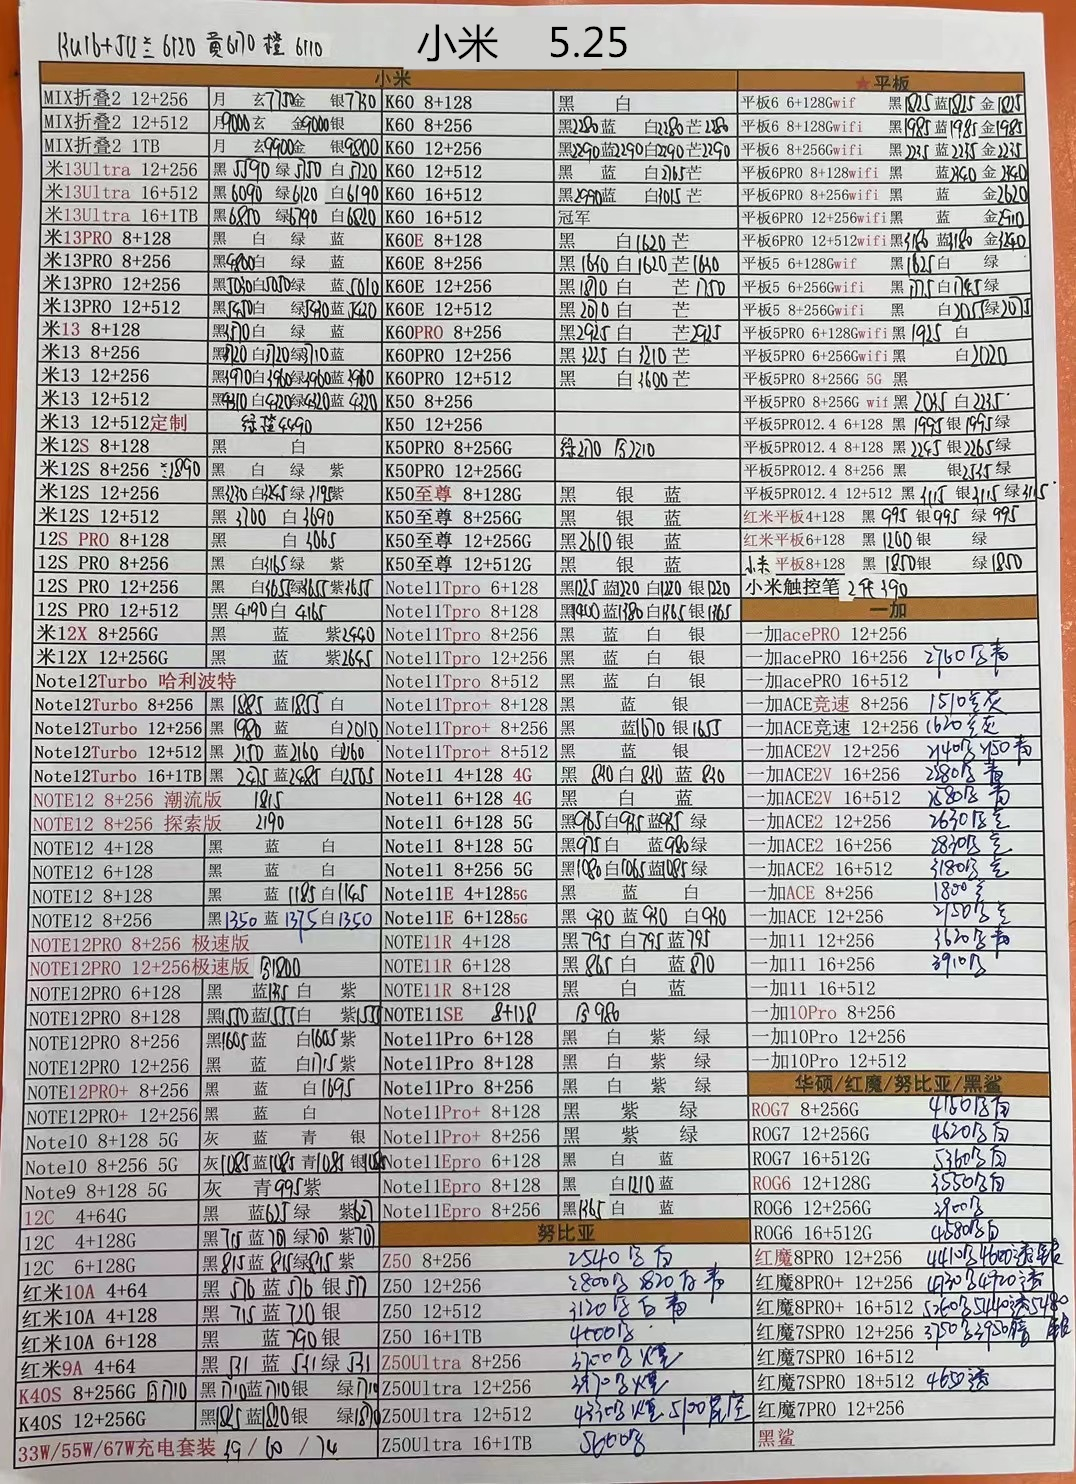 小米 5.25
小米
★平板
MIX折叠2 12+256 月 玄7750金 银7730 K60 8+128 黑 白 平板6 6+128Gwif 黑1825蓝1825金1825
MIX折叠2 12+512 月9000玄 金9000银 K60 8+256 黑2280蓝 白2280芒2280 平板6 8+128Gwifi 黑1985蓝1985金1985
MIX折叠2 1TB 月 玄9900金 银9800 K60 12+256 黑2290蓝2290白2290芒2290 平板6 8+256Gwifi 黑2235蓝2235金2235
米13Ultra 12+256 黑5590绿5750白5720 K60 12+512 黑 蓝 白2765芒 平板6PRO 8+128wifi 黑 蓝2340金2340
米13Ultra 16+512 黑6090绿6120白6190 K60 16+512 黑2990蓝 白3015芒 平板6PRO 8+256wifi 黑 蓝 金2620
米13Ultra 16+1TB 黑6850绿6790白6820 K60 16+512 冠军 平板6PRO 12+256wifi 黑 蓝 金2910
米13PRO 8+128 黑 白 绿 蓝 K60E 8+128 黑 白1620芒 平板6PRO 12+512wifi 黑3180蓝3180金3240
米13PRO 8+256 黑4800白 绿 蓝 K60E 8+256 黑1630白1620芒1630 平板5 6+128Gwif 黑1625白 绿
米13PRO 12+256 黑5030白5050绿 蓝5010 K60E 12+256 黑1810白 芒1750 平板5 6+256Gwif 黑1775白1745绿
米13PRO 12+512 黑5450白 绿5430蓝5420 K60E 12+512 黑2070白 芒 平板5 8+256Gwif 黑 白2055绿2075
米13 8+128 黑3570白 绿 蓝 K60PRO 8+256 黑2925白 芒2925 平板5PRO 6+128Gwifi 黑1925白
米13 8+256 黑3720白3720绿3710蓝 K60PRO 12+256 黑3225白3210芒 平板5PRO 6+256Gwifi 黑 白2020
米13 12+256 黑3970白3960绿3960蓝3960 K60PRO 12+512 黑 白3600芒 平板5PRO 8+256G 5G 黑
米13 12+512 黑4310白4320绿4320蓝4320 K50 8+256 平板5PRO 8+256G wif 黑2035白2235
米13 12+512定制 绿 橙4490 K50 12+256 平板5PRO12.4 6+128 黑1995银1995绿
米12S 8+128 黑 白 K50PRO 8+256G 绿2170 平板5PRO12.4 8+128 黑2245银2265绿
米12S 8+256 黑 白 绿 紫 K50PRO 12+256G 平板5PRO12.4 8+256 黑 银2545绿
米12S 12+256 黑3230白3245绿3195紫 K50至尊 8+128G 黑 银 蓝 平板5PRO12.4 12+512 黑3115银3115绿3115
米12S 12+512 黑3700白3690 K50至尊 8+256G 黑 银 蓝 红米平板4+128 黑995银995绿995
12S PRO 8+128 黑 白3065 K50至尊 12+256G 黑2610银 蓝 红米平板6+128 黑1200银 绿
12S PRO 8+256 黑 白3165绿 紫 K50至尊 12+512G 黑 银 蓝 小米平板8+128 黑1850银 绿1850
12S PRO 12+256 黑 白3655绿3655紫3655 Note11Tpro 6+128 黑1225蓝1220白1220银1220 小米触控笔 2代390
12S PRO 12+512 黑4190白4165 Note11Tpro 8+128 黑1400蓝1380白1365银1365 一加
米12X 8+256G 黑 蓝 紫2440 Note11Tpro 8+256 黑 蓝 白 银 一加acePRO 12+256
米12X 12+256G 黑 蓝 紫2645 Note11Tpro 12+256 黑 蓝 白 银 一加acePRO 16+256
Note12Turbo 哈利波特 Note11Tpro 8+512 黑 蓝 白 银 一加acePRO 16+512
Note12Turbo 8+256 黑1885蓝1855白 Note11Tpro+ 8+128 黑 蓝 银 一加ACE竞速 8+256 1510
Note12Turbo 12+256 黑1980蓝 白2010 Note11Tpro+ 8+256 黑 蓝1670银1655 一加ACE竞速 12+256 1620
Note12Turbo 12+512 黑2150蓝2160白2160 Note11Tpro+ 8+512 黑 蓝 银 一加ACE2V 12+256
Note12Turbo 16+1TB 黑2475蓝2485白2505 Note11 4+128 4G 黑830白830蓝830 一加ACE2V 16+256
NOTE12 8+256 潮流版 1815 Note11 6+128 4G 黑 白 蓝 一加ACE2V 16+512
NOTE12 8+256 探索版 2190 Note11 6+128 5G 黑965白935蓝935绿 一加ACE2 12+256
NOTE12 4+128 黑 蓝 白 Note11 8+128 5G 黑975白 蓝980绿 一加ACE2 16+256
NOTE12 6+128 黑 蓝 白 Note11 8+256 5G 黑1080白1065蓝1085绿 一加ACE2 16+512
NOTE12 8+128 黑 蓝1185白1145 Note11E 4+1285G 黑 蓝 白 一加ACE 8+256
NOTE12 8+256 黑1350蓝1375白1350 Note11E 6+1285G 黑930蓝930白930 一加ACE 12+256
NOTE12PRO 8+256 极速版 NOTE11R 4+128 黑795白795蓝795 一加11 12+256
NOTE12PRO 12+256极速版 NOTE11R 6+128 黑865白 蓝870 一加11 16+256
NOTE12PRO 6+128 黑 蓝 白 紫 NOTE11R 8+128 黑 白 蓝 一加11 16+512
NOTE12PRO 8+128 黑1550蓝1555白 紫1555 NOTE11SE 8+128 一加10Pro 8+256
NOTE12PRO 8+256 黑1605蓝 白1605紫 Note11Pro 6+128 黑 白 紫 绿 一加10Pro 12+256
NOTE12PRO 12+256 黑 蓝 白1715紫 Note11Pro 8+128 黑 白 紫 绿 一加10Pro 12+512
NOTE12PRO+ 8+256 黑 蓝 白1695 Note11Pro 8+256 黑 白 紫 绿 华硕/红魔/努比亚/黑鲨
NOTE12PRO+ 12+256 黑 蓝 白 Note11Pro+ 8+128 黑 紫 绿 ROG7 8+256G
Note10 8+128 5G 灰 蓝 青 银 Note11Pro+ 8+256 黑 紫 绿 ROG7 12+256G
Note10 8+256 5G 灰1085蓝1085青1085银1085 Note11Epro 6+128 黑 白 蓝 ROG7 16+512G
Note9 8+128 5G 灰 青995紫 Note11Epro 8+128 黑 白1210蓝 ROG6 12+128G
12C 4+64G 黑 蓝625绿 紫627 Note11Epro 8+256 黑1365白 蓝 ROG6 12+256G
12C 4+128G 黑715蓝701绿701紫701 努比亚 ROG6 16+512G
12C 6+128G 黑815蓝815绿815紫 Z50 8+256 2540 红魔8PRO 12+256
红米10A 4+64 黑576蓝576银577 Z50 12+256 红魔8PRO+ 12+256
红米10A 4+128 黑715蓝720银 Z50 12+512 3120 红魔8PRO+ 16+512
红米10A 6+128 黑 蓝790银 Z50 16+1TB 红魔7SPRO 12+256
红米9A 4+64 黑531蓝531绿531 Z50Ultra 8+256 红魔7SPRO 16+512
K40S 8+256G 黑1710蓝1710银 绿1710 Z50Ultra 12+256 红魔7SPRO 18+512
K40S 12+256G 黑1825蓝1820银 绿1870 Z50Ultra 12+512 红魔7PRO 12+256
33W/55W/67W充电套装 39/60/74 Z50Ultra 16+1TB 黑鲨